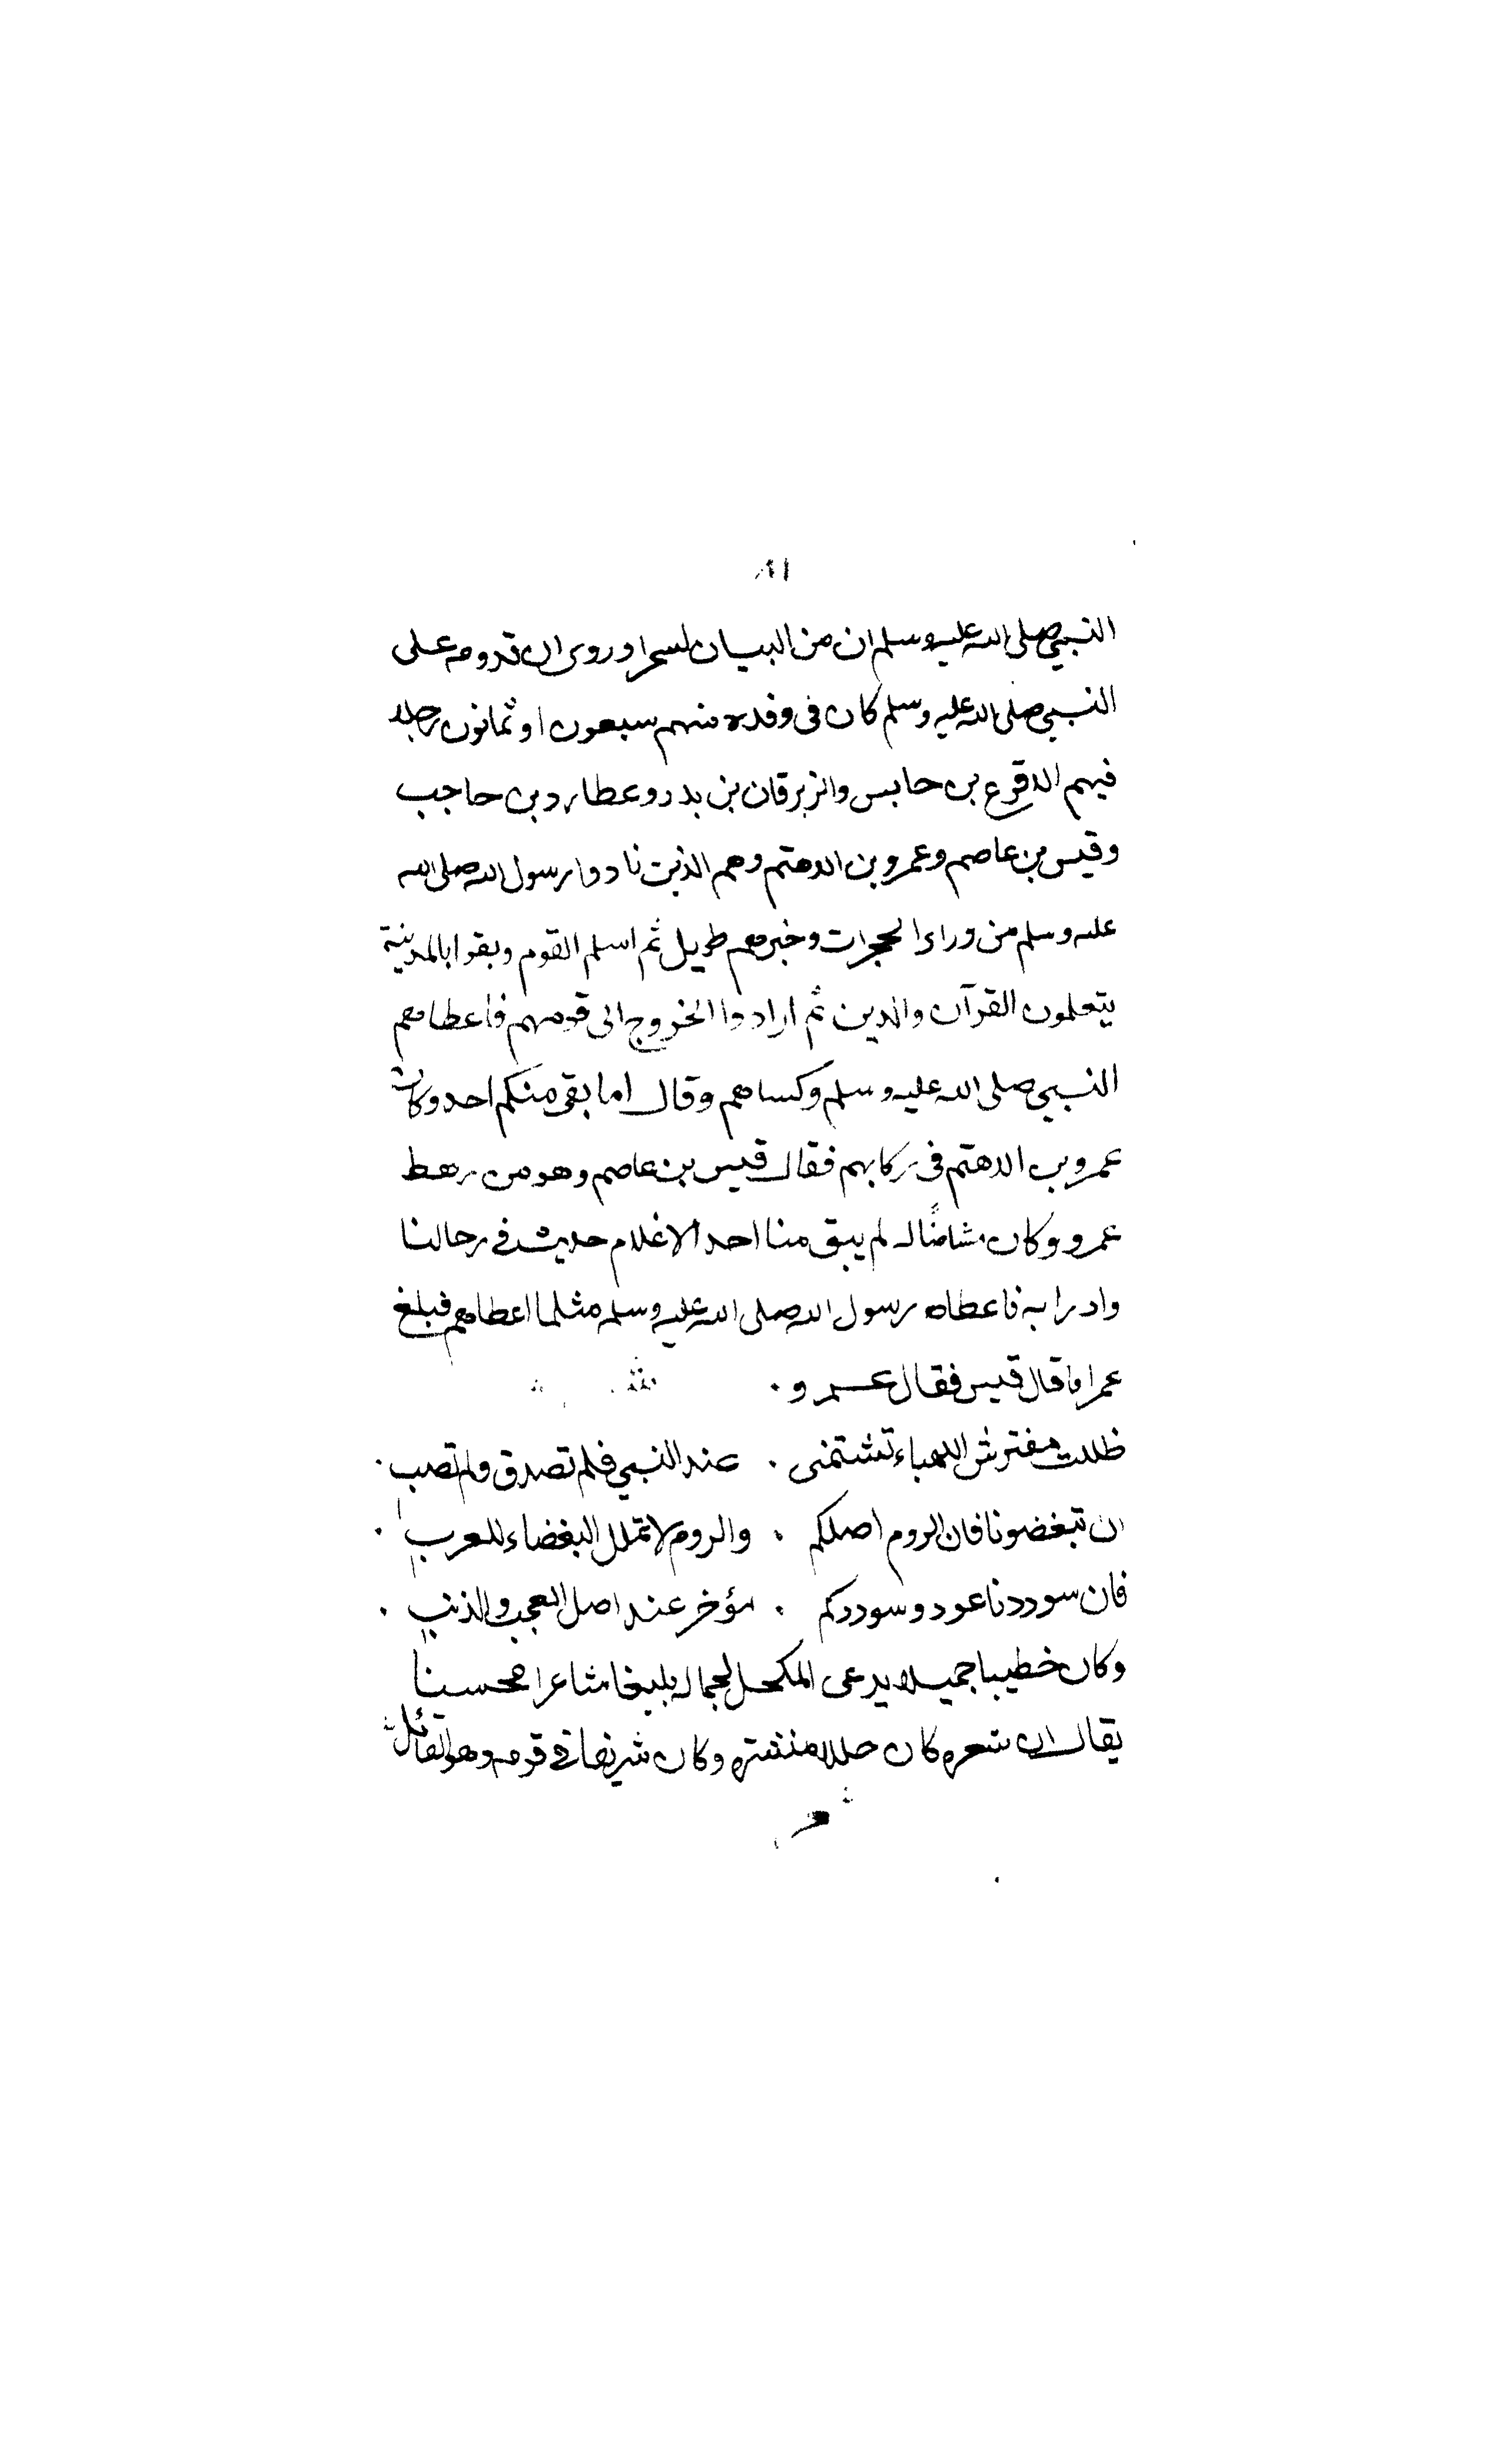 ٨١
النبي صلى الله عليه وسلم ان من البيان لسحرا وروى ان قدومه على
النبي صلى الله عليه وسلم كان في وفده منهم سبعون او ثمانون رجلا
فيهم الاقرع بن حابس والزبرقان بن بدر وعطارد بن حاجب
وقيس بن عاصم وعمرو بن الاهتم وهم الذين نادوا رسول الله صلى الله
عليه وسلم من وراء الحجرات وخبرهم طويل ثم اسلم القوم وبقوا بالمدينة
يتعلمون القرآن والدين ثم ارادوا الخروج الى قومهم فاعطاهم
النبي صلى الله عليه وسلم وكساهم وقال اما بقى منكم احد وكان
عمرو بن الاهتم في ركابهم فقال قيس بن عاصم وهو من رهط
عمرو وكان مشاحنا له لم يبق منا احد الا غلام حديث في رحالنا
وازرا به فاعطاه رسول الله صلى الله عليه وسلم مثل ما اعطاهم فبلغ
عمرا ما قال قيس فقال عمرو .
ظللت مفترش الهلباء تشتمنى . عند النبي فلم تصدق ولم تصب .
ان تبغضونا فان الروم اصلكم . والروم لا تملك البغضاء للعرب .
فان سوددنا عود وسوددكم . مؤخر عند اصل العجب والذنب .
وكان خطيبا جميلا يدعى المكحل لجماله بليغا شاعرا محسنا
يقال ان شعره كان حللا منتشرة وكان شريفا في قومه وهو القائل